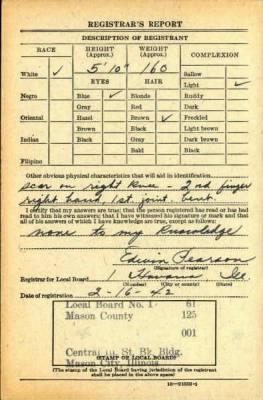 REGISTRAR'S REPORT
DESCRIPTION OF REGISTRANT
RACE HEIGHT (Approx.) WEIGHT (Approx.) COMPLEXION
White ✓ 5' 10" 160 Sallow
EYES HAIR Light ✓
Negro Blue ✓ Blonde Ruddy
Gray Red Dark
Oriental Hazel Brown ✓ Freckled
Brown Black Light brown
Indian Black Gray Dark brown
Bald Black
Filipino
Other obvious physical characteristics that will aid in identification
scar on right knee - 2nd finger
right hand, 1st joint, bent
I certify that my answers are true; that the person registered has read or has had
read to him his own answers; that I have witnessed his signature or mark and that
all of his answers of which I have knowledge are true, except as follows:
none to my knowledge
Edwin Pearson
(Signature of registrar)
Registrar for Local Board 1 Havana Ill
(Number) (City or county) (State)
Date of registration 2-16-42
Local Board No. 1 61
Mason County 125
001
St. Bk. Bldg.
Mason City, Illinois
(STAMP OF LOCAL BOARD)
(The stamp of the Local Board having jurisdiction of the registrant
shall be placed in the above space)